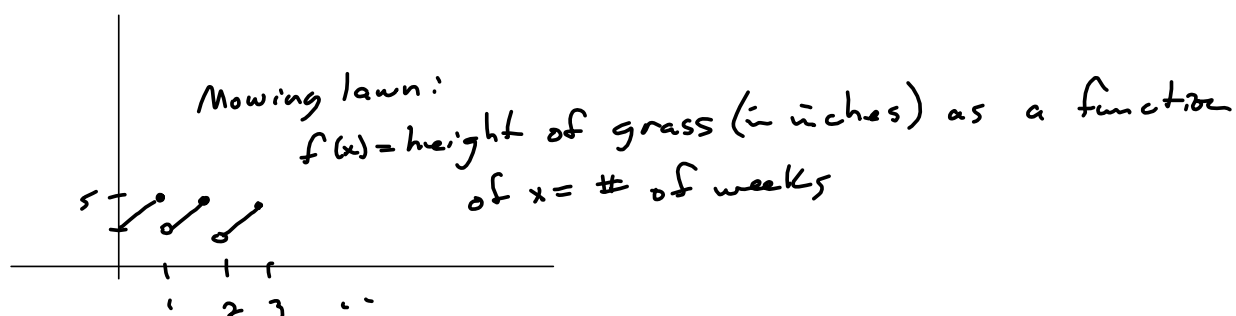 Mowing lawn:
f(x) = height of grass (in inches) as a function
of x = # of weeks
5
1 2 3 ...